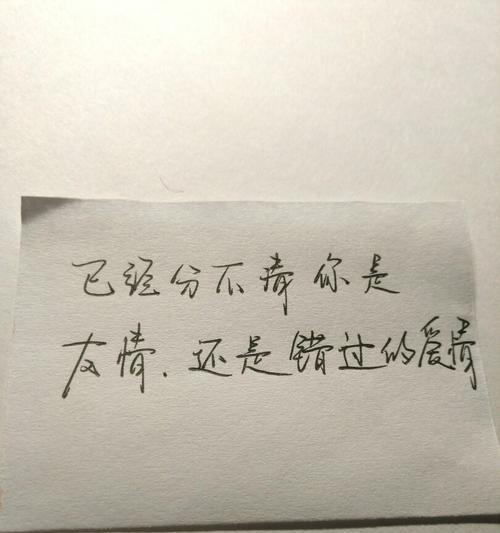 已经分不清你是
友情.还是错过的爱情